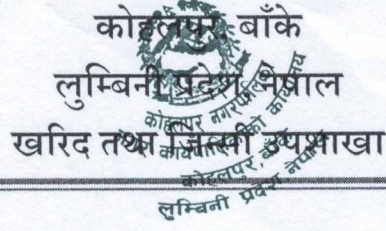 कोहलपुर, बाँके
लुम्बिनी प्रदेश, नेपाल
खरिद तथा जिन्सी उपशाखा
कोहलपुर नगरपालिका
नगर कार्यपालिकाको कार्यालय
कोहलपुर, बाँके
लुम्बिनी प्रदेश नेपाल